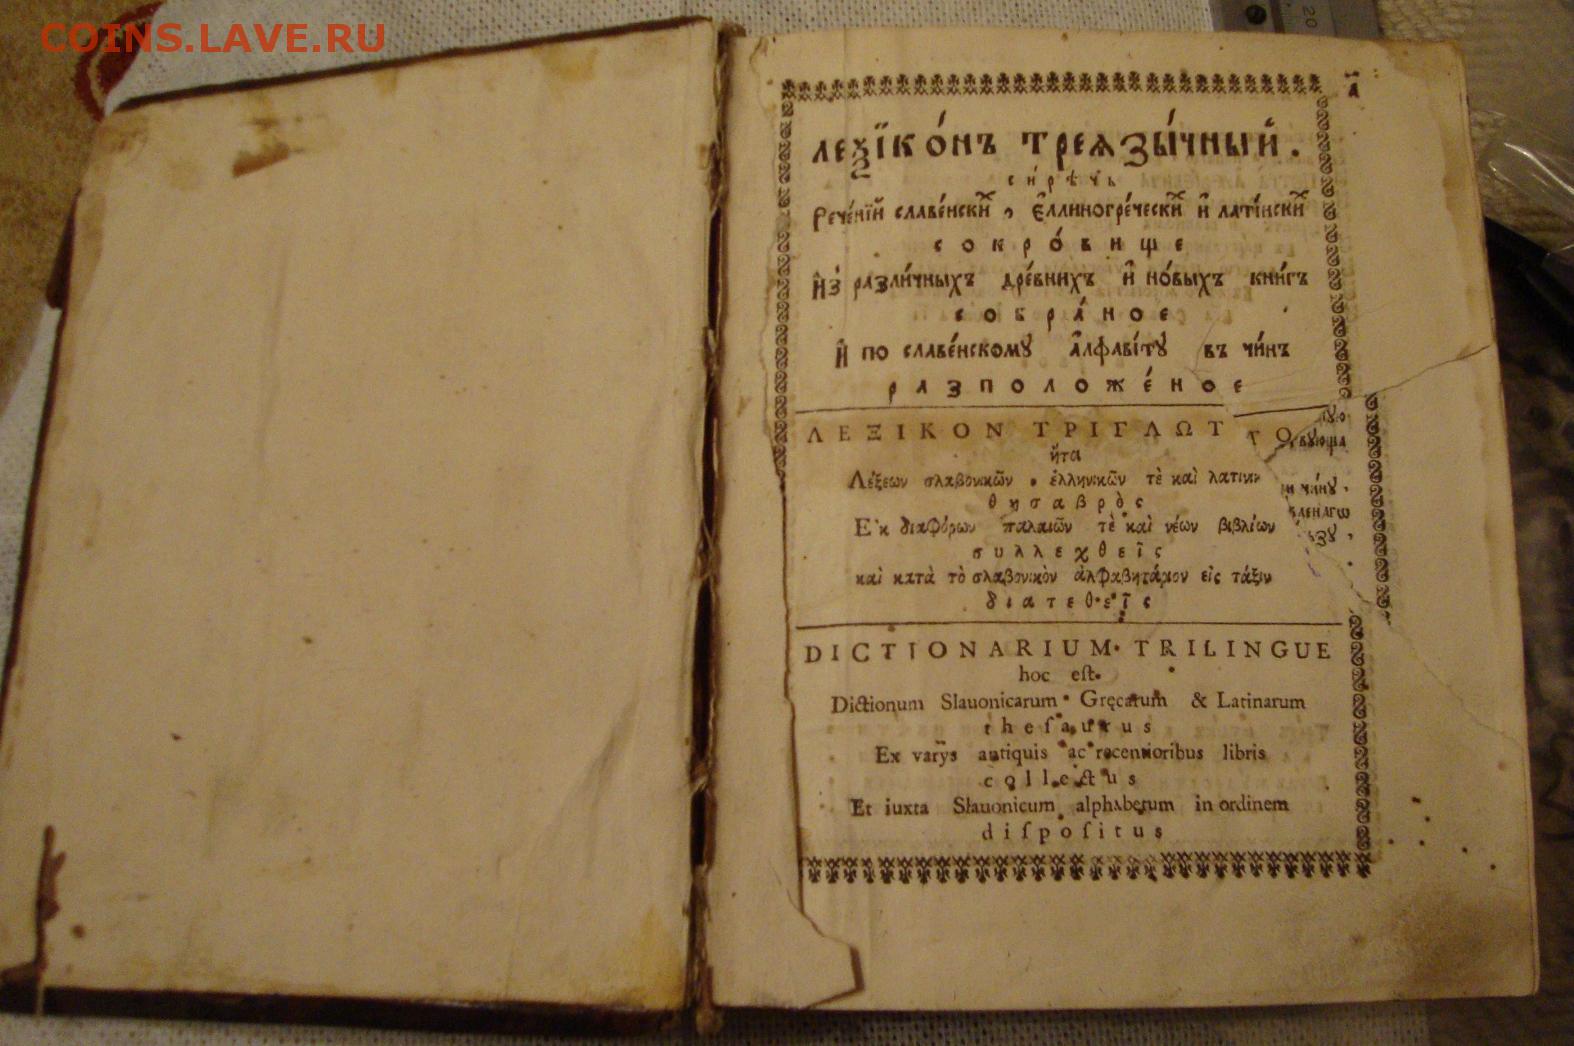 COINS.LAVE.RU
20
а҃
леѯїко́нъ треѧзы́чный.
си́рѣчь
Рече́нїй славе́нскихъ, є҆ллиногре́ческихъ и҆ латі́нскихъ
сокро́вище
И҆з̾ разли́чныхъ дре́внихъ и҆ но́выхъ кни́гъ
собра́ное
И҆ по славе́нскому а҆лфаві́ту въ чи́нъ
разположе́ное
ΛΕΞΙΚΟΝ ΤΡΙΓΛΩΤΤΟ
ἤτα
Λέξεων σλαβονικῶν . ἑλληνικῶν τὲ καὶ λατιν
θησαβρὸς
Ἐκ διαφόρων παλαιῶν τὲ καὶ νέων βιβλίων
συλλεχθεῖς
καὶ κατὰ τὸ σλαβονικὸν ἀλφαβητάριον εἰς τάξιν
διατεθεῖς
чи́ну.
DICTIONARIUM TRILINGUE
hoc eſt.
Dictionum Slauonicarum Gręcarum & Latinarum
theſaurus
Ex varÿs antiquis ac recentioribus libris
collectus
Et iuxta Slauonicum alphabetum in ordinem
diſpoſitus